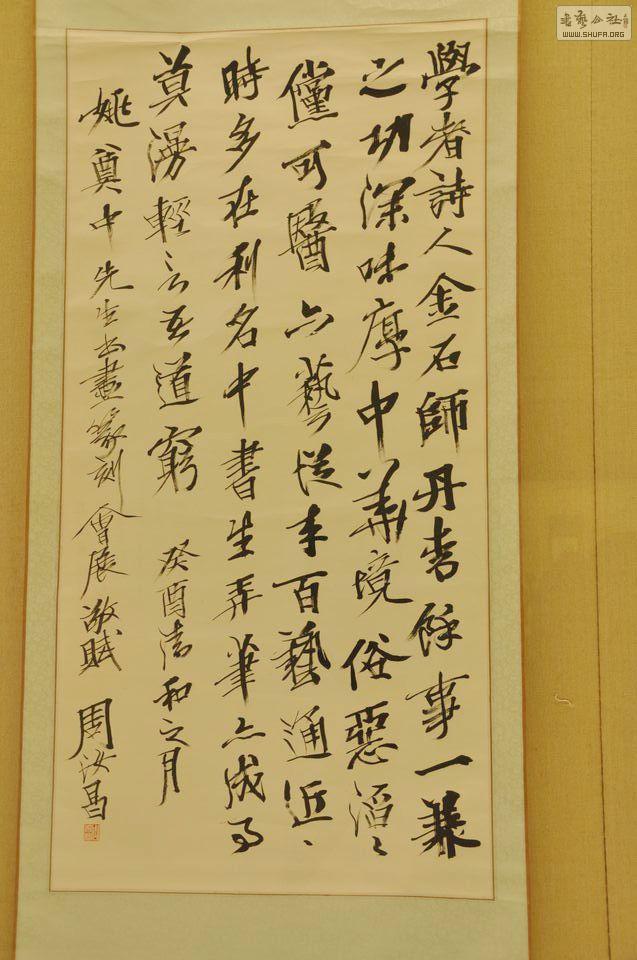 學者詩人金石師丹青餘事一兼
之功深味厚中華境俗惡
儻可醫六藝從來百藝通近〻
時多在利名中書生弄筆亦成
莫漫輕言吾道窮 癸酉清和之月
姚奠中先生書畫篆刻會展敬賦 周汝昌
書藝公社
WWW.SHUFA.ORG